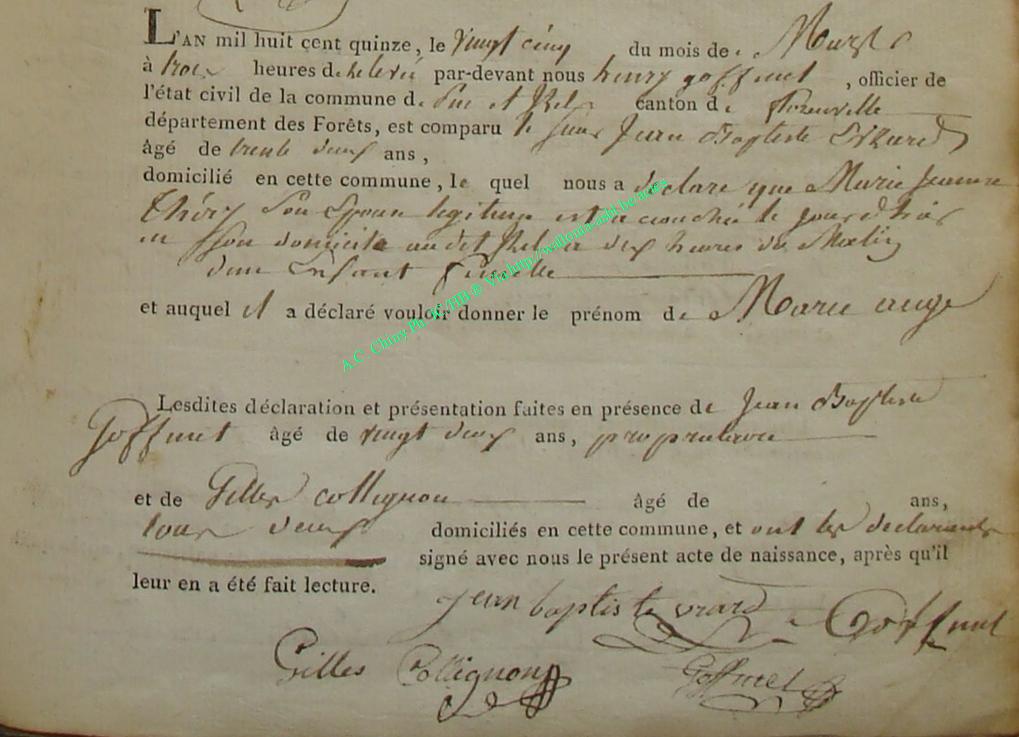 L'AN mil huit cent quinze, le vingt cinq du mois de Mars
à trois heures de relevé par-devant nous henry goffinet, officier de
l'état civil de la commune de et canton de florenville
département des Forêts, est comparu le sieur Jean Baptiste Evrard
âgé de trente deux ans,
domicilié en cette commune, lequel nous a declare que Marie Jeanne
Théry Son Epouse legitime est accouchée le jourdhui
en Son domicile audit a dix heures du Matin
dun Enfant femelle
et auquel il a déclaré vouloir donner le prénom de Marie ange
Lesdites déclaration et présentation faites en présence de Jean Baptiste
Goffinet âgé de vingt deux ans, propriétaire
et de Gilles collignon âgé de ans,
tous deux domiciliés en cette commune, et ont les declarants
signé avec nous le présent acte de naissance, après qu'il
leur en a été fait lecture.
jean baptiste evrard Goffinet
Gilles Collignon Goffinet
A.C. Chiny Ph. © Via http://wallonia-asbl.be/actes